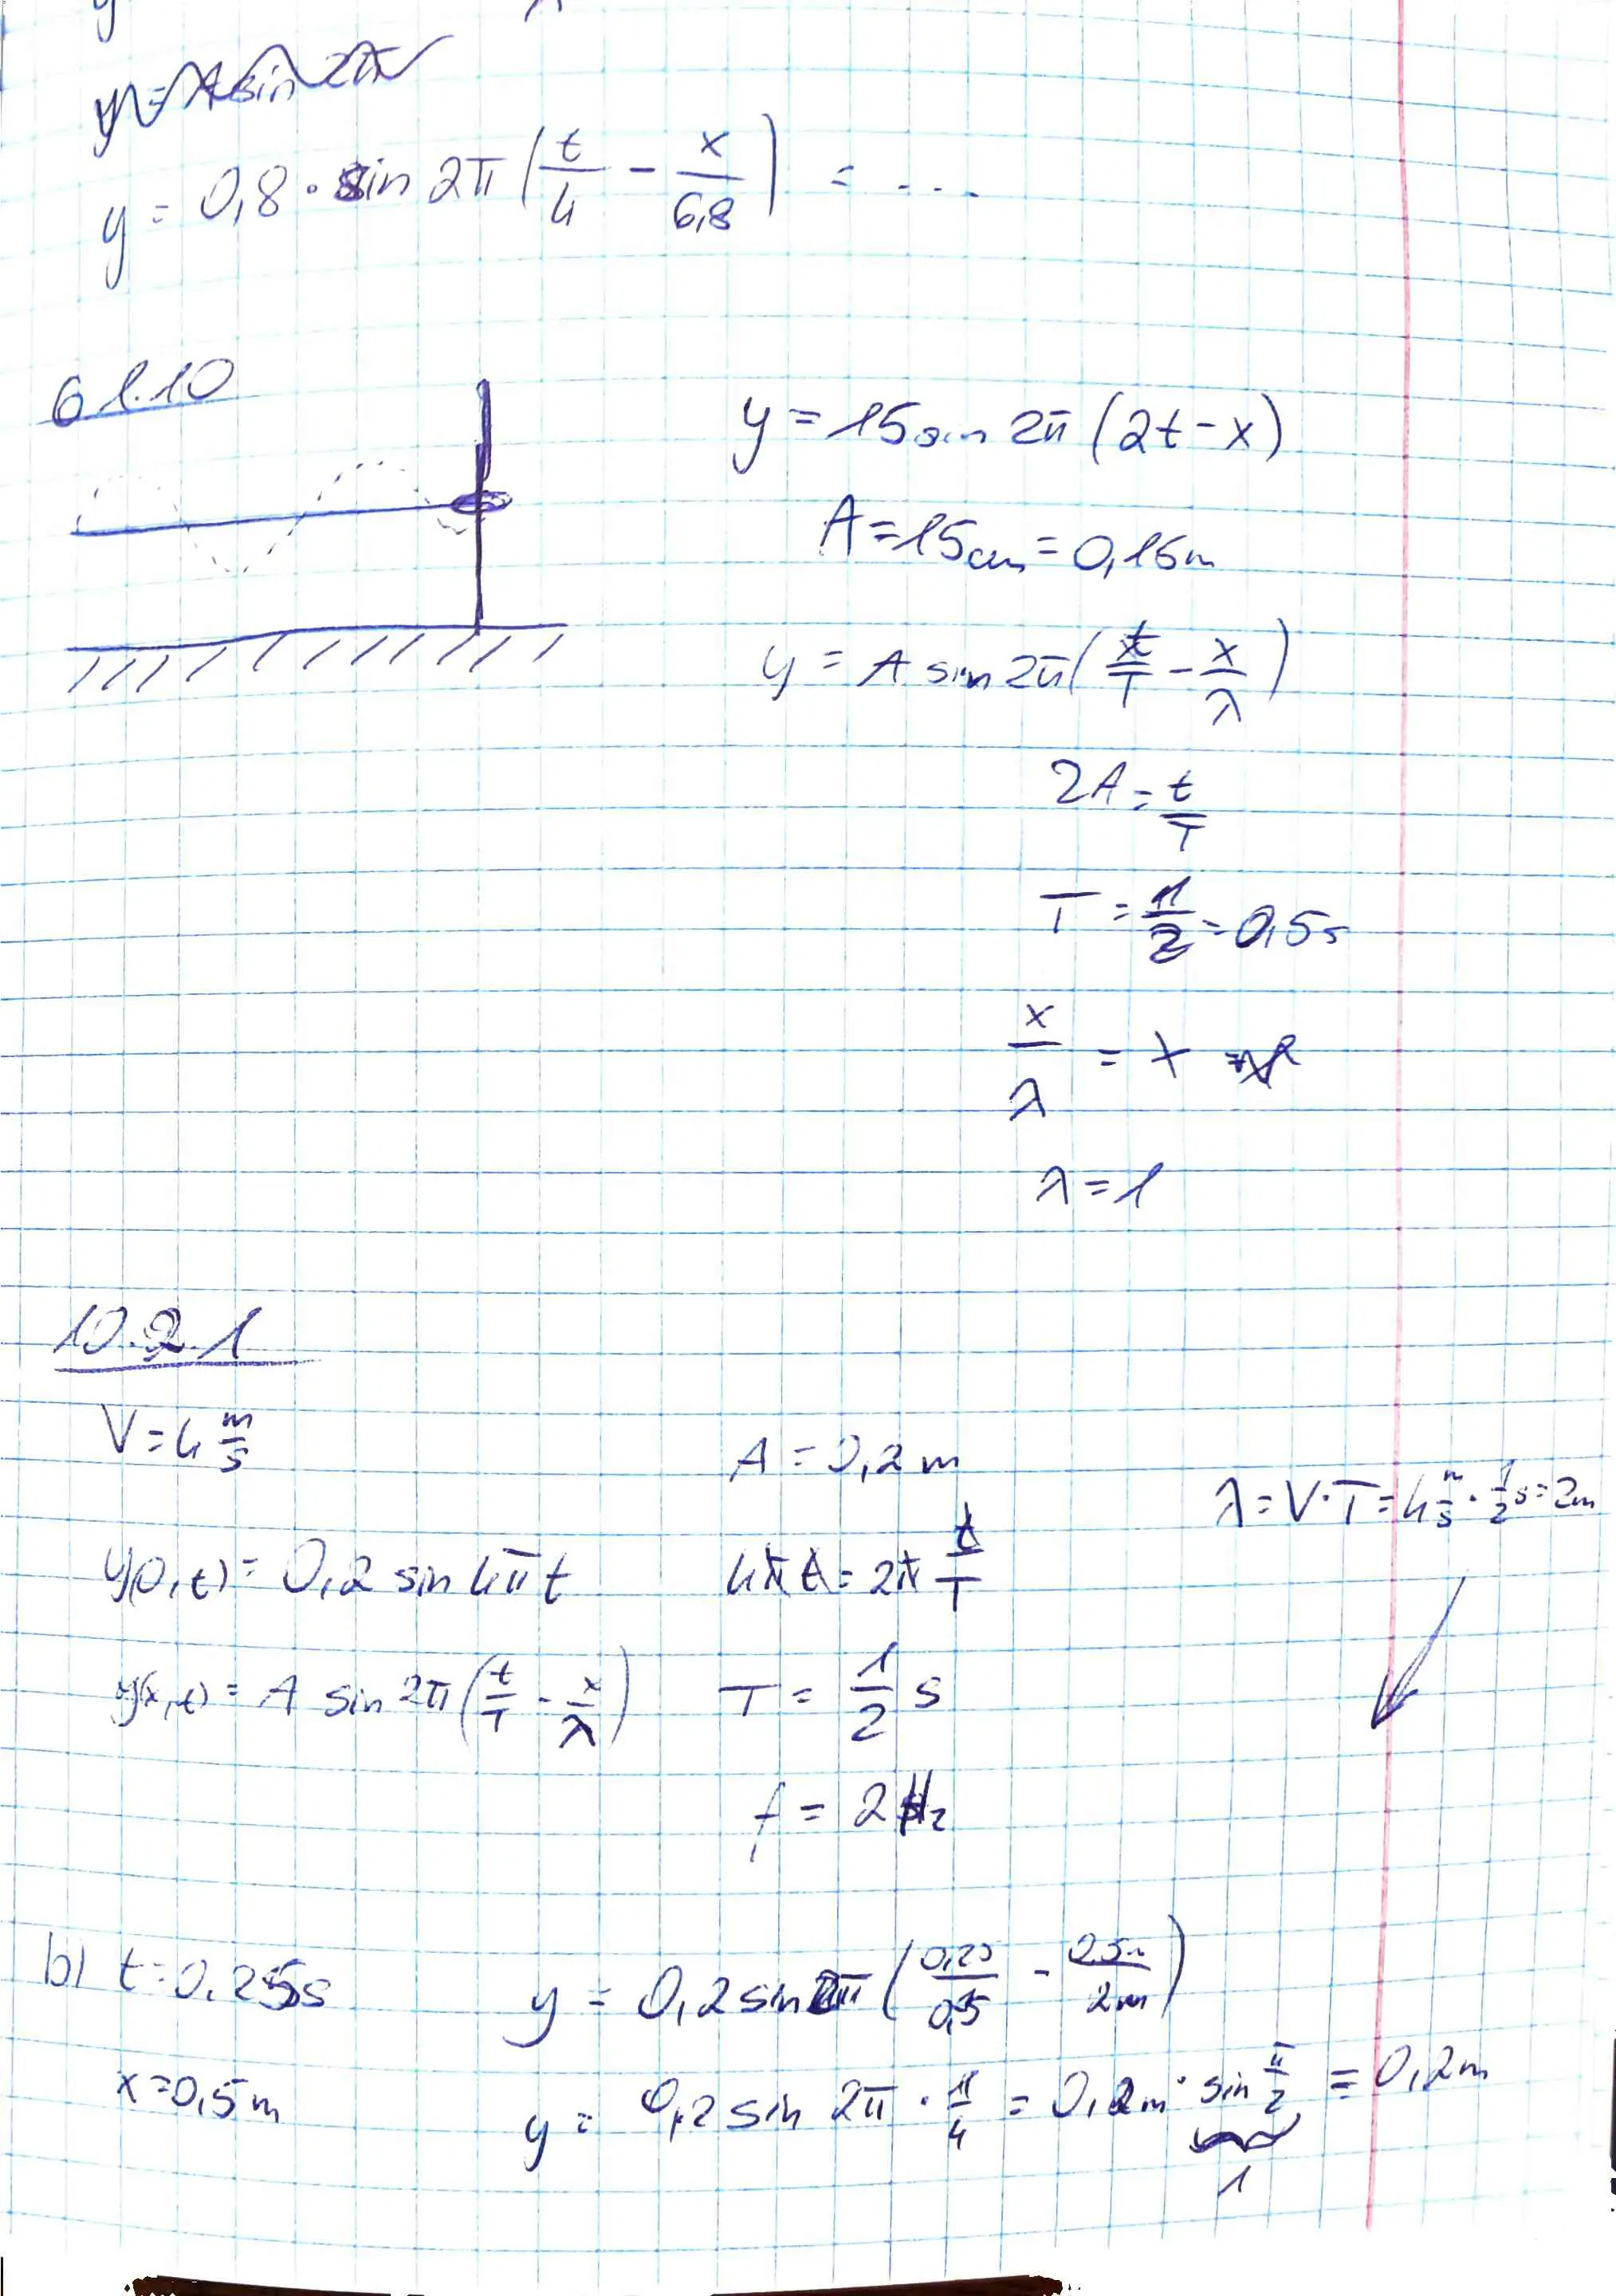 y = 0,8 · sin 2π (t/4 - x/6,8) = ...
6 1.10
y = 15 sin 2π (2t - x)
A = 15cm = 0,15m
y = A sin 2π (t/T - x/λ)
2A = t/T
T = 1/2 = 0,5s
x/λ = x
λ = 1
10.2.1
V = 4 m/s
A = 0,2 m
λ = V·T = 4 m/s · 1/2 s = 2m
y(0,t) = 0,2 sin 4π t
4πt = 2π t/T
y(x,t) = A sin 2π (t/T - x/λ)
T = 1/2 s
f = 2 Hz
b) t = 0,25s
y = 0,2 sin 2π (0,25/0,5 - 0,5m/2m)
x = 0,5 m
y = 0,2 sin 2π · 1/4 = 0,2m · sin π/2 = 0,2m
1